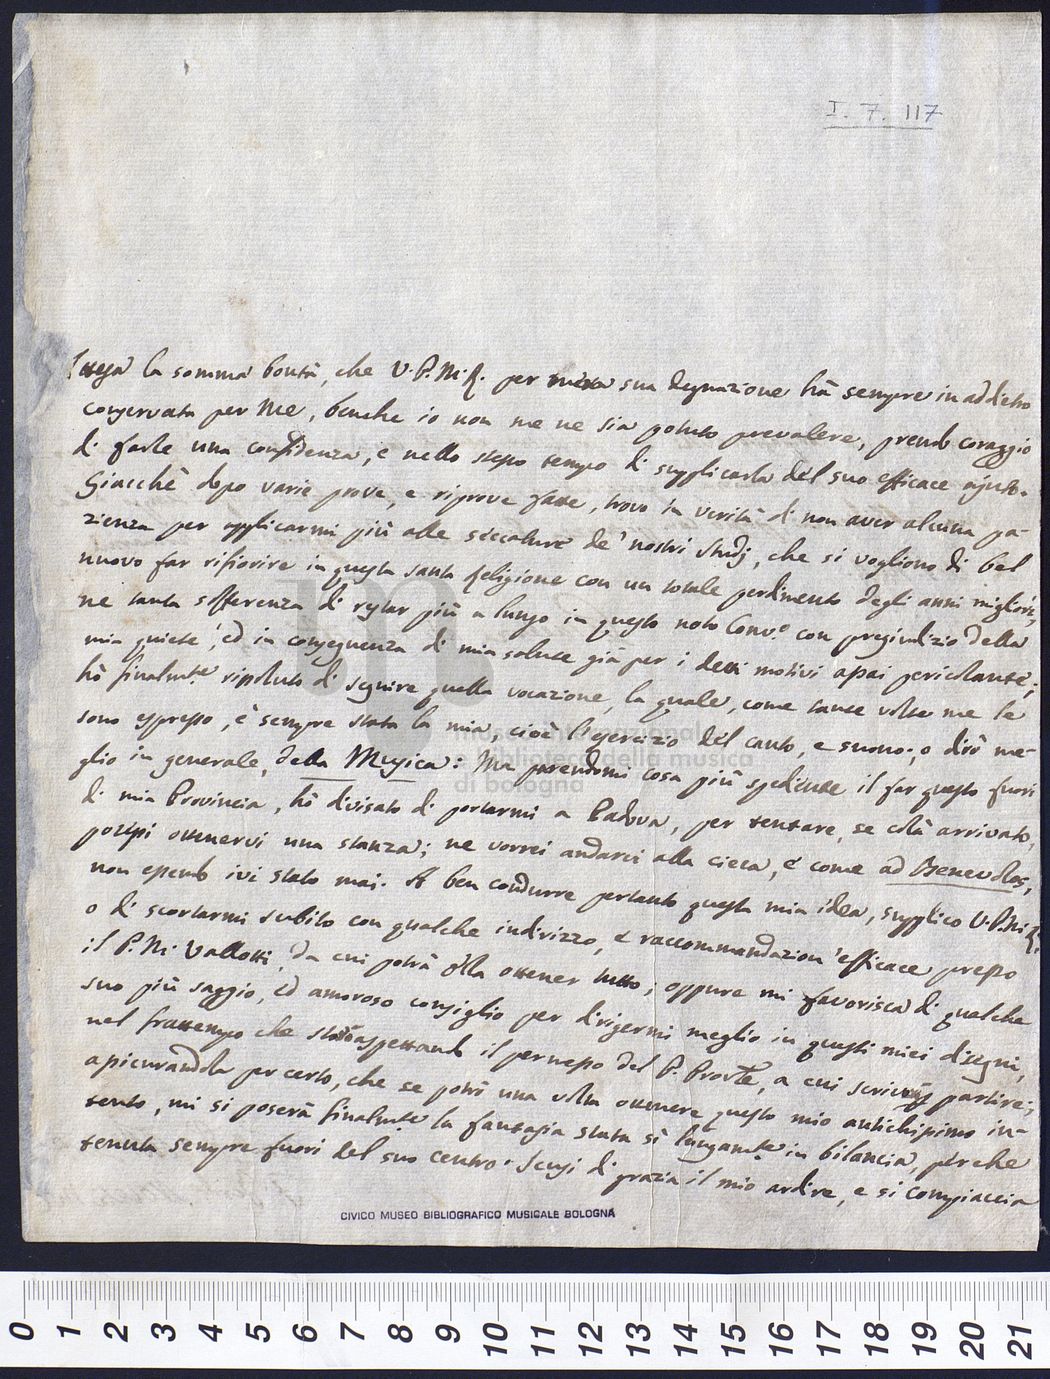 I. 7. 117
Attesa la somma bontà, che V. P. M. R. per mera sua degnazione hà sempre in addietro
conservata per Me, benche io non me ne sia potuto prevalere, prendo coraggio
di farle una confidenza, e nello stesso tempo di supplicarla del suo efficace ajuto.
Giacchè dopo varie prove, e riprove fatte, trovo in verità di non aver alcuna pa-
zienza per applicarmi più alle seccature de' nostri Studj, che si vogliono di bel
nuovo far rifiorire in questa santa Religione con un totale perdimento degli anni migliori,
ne tanta sofferenza di restar più a lungo in questo noto Conv.o con pregiudizio della
mia quiete, ed in conseguenza di mia salute già per i detti motivi assai pericolante;
hò finalm.te risoluto di seguire quella vocazione, la quale, come tante volte me le
sono espresso, è sempre stata la mia, cioè l'esercizio del canto, e suono; o dirò me-
glio in generale, della Musica: Ma parendomi cosa più spediente il far questo fuori
di mia Provincia, hò divisato di portarmi a Padova, per tentare, se colà arrivato,
potessi ottenervi una stanza; ne vorrei andarci alla cieca, e come ad Benevolos,
non essendo ivi stato mai. A ben condurre pertanto questa mia idea, supplico V. P. M. R.
o di scortarmi subito con qualche indirizzo, e raccommandazion 'efficace presso
il P. M. Vallotti, da cui potrà Ella ottener tutto, oppure mi favorisca di qualche
suo più saggio, ed amoroso consiglio per dirigermi meglio in questi miei disegni,
nel frattempo che starò aspettando il permesso del P. Prov.le, a cui scrivo, partire;
assicurandola per certo, che se potrò una volta ottenere questo mio antichissimo in-
tento, mi si poserà finalm.te la fantasia stata sì lungam.te in bilancia, perche
tenuta sempre fuori del suo centro. Scusi di grazia il mio ardire, e si compiaccia
CIVICO MUSEO BIBLIOGRAFICO MUSICALE BOLOGNA
museo internazionale
e biblioteca della musica
di bologna
0 1 2 3 4 5 6 7 8 9 10 11 12 13 14 15 16 17 18 19 20 21